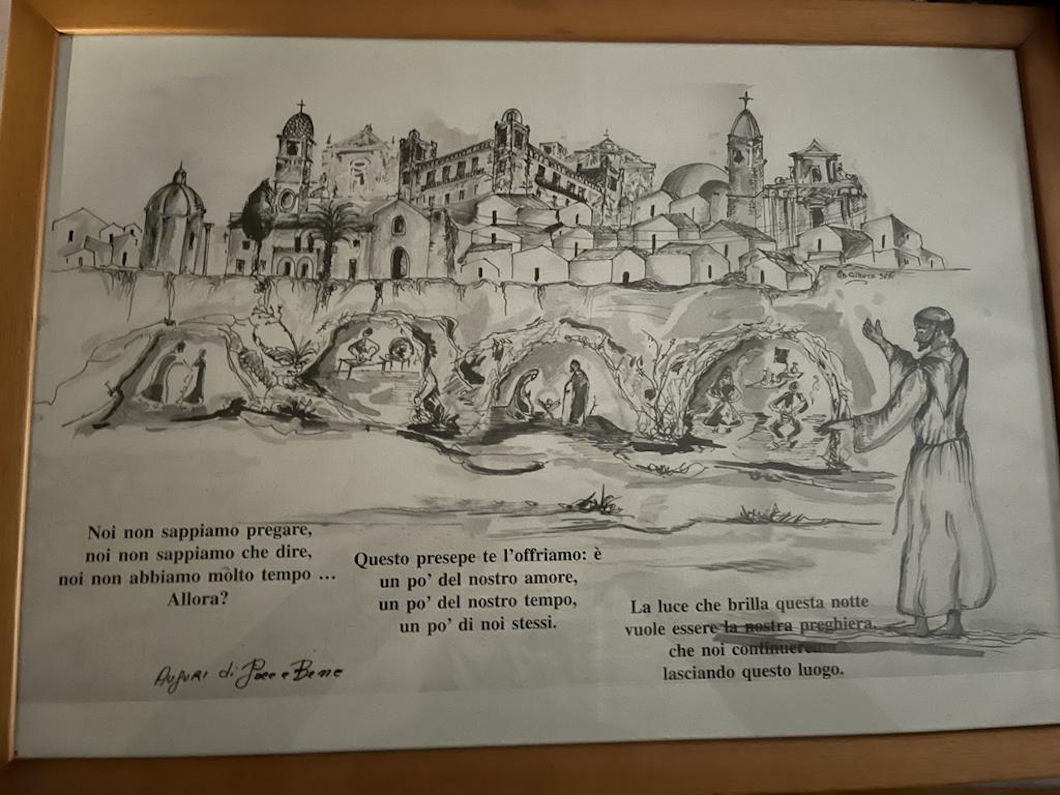 Noi non sappiamo pregare,
noi non sappiamo che dire,
noi non abbiamo molto tempo ...
Allora?
Questo presepe te l'offriamo: è
un po' del nostro amore,
un po' del nostro tempo,
un po' di noi stessi.
La luce che brilla questa notte
vuole essere la nostra preghiera,
che noi continueremo
lasciando questo luogo.
Auguri di Pace e Bene